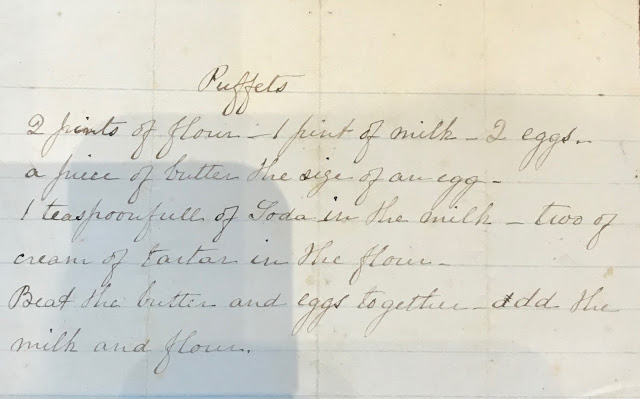 Puffets
2 pints of flour – 1 pint of milk – 2 eggs –
a piece of butter the size of an egg –
1 teaspoonfull of Soda in the milk – two of
cream of tartar in the flour –
Beat the butter and eggs together – add the
milk and flour.